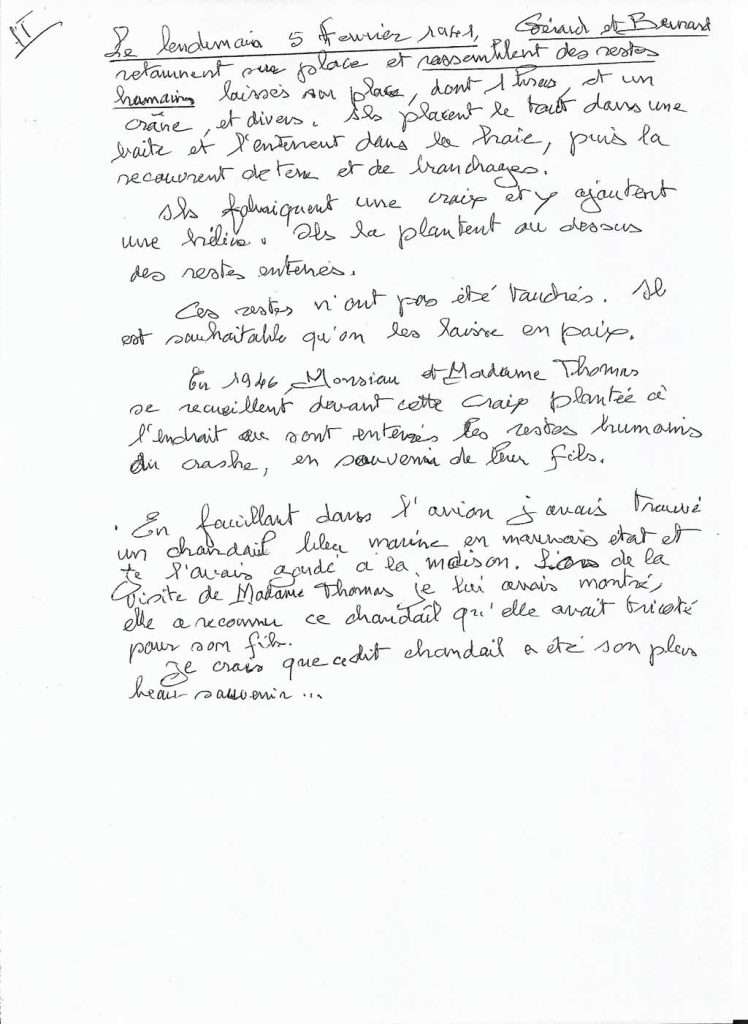 II
Le lendemain 5 fevrier 1941, Gérard et Bernard
retournent sur place et rassemblent des restes
humains laissés sur place, dont 1 et un
crâne, et divers. Ils placent le tout dans une
boite et l'enterrent dans la haie, puis la
recouvrent de terre et de branchages.
Ils fabriquent une croix et y ajoutent
une hélice. Ils la plantent au dessus
des restes enterrés.
Ces restes n'ont pas été touchés. Il
est souhaitable qu'on les laisse en paix.
En 1946, Monsieur et Madame Thomas
se recueillent devant cette croix plantée à
l'endroit ou sont enterrés les restes humains
du crashe, en souvenir de leur fils.
. En fouillant dans l'avion j'avais trouvé
un chandail bleu marine en mauvais état et
je l'avais gardé à la maison. Lors de la
visite de Madame Thomas je lui avais montré,
elle a reconnu ce chandail qu'elle avait tricoté
pour son fils.
Je crois que cedit chandail a été son plus
beau souvenir ...